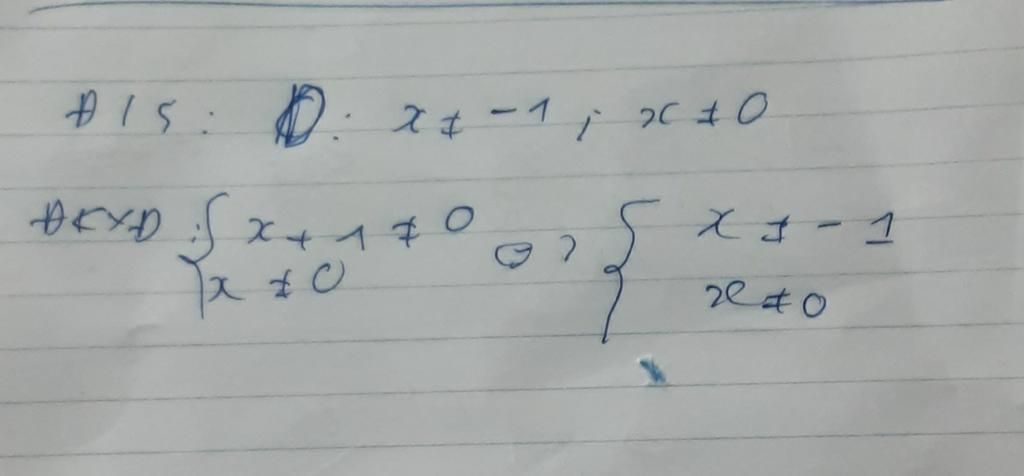 Đ/S: D: x ≠ -1; x ≠ 0
ĐKXĐ: { x + 1 ≠ 0 <=> { x ≠ -1
x ≠ 0 x ≠ 0